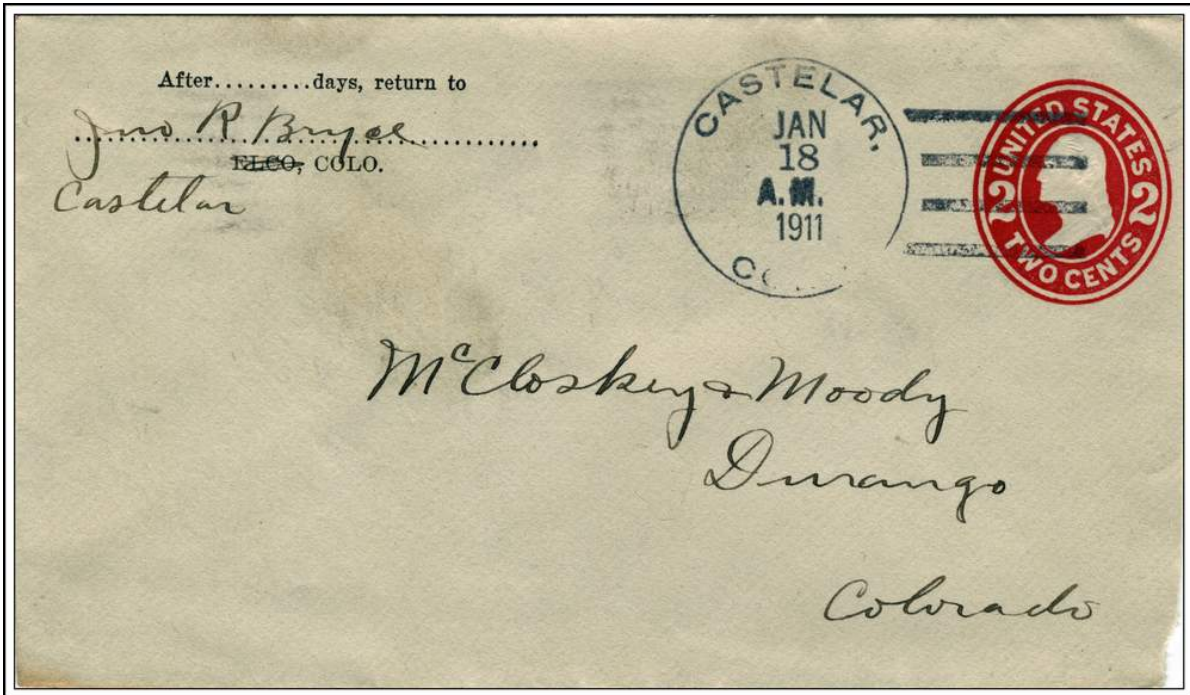 After.........days, return to
Jno R Bryce
ELCO, COLO.
Castelar
CASTELAR,
JAN
18
A.M.
1911
UNITED STATES
2 2
TWO CENTS
McCloskey & Moody
Durango
Colorado